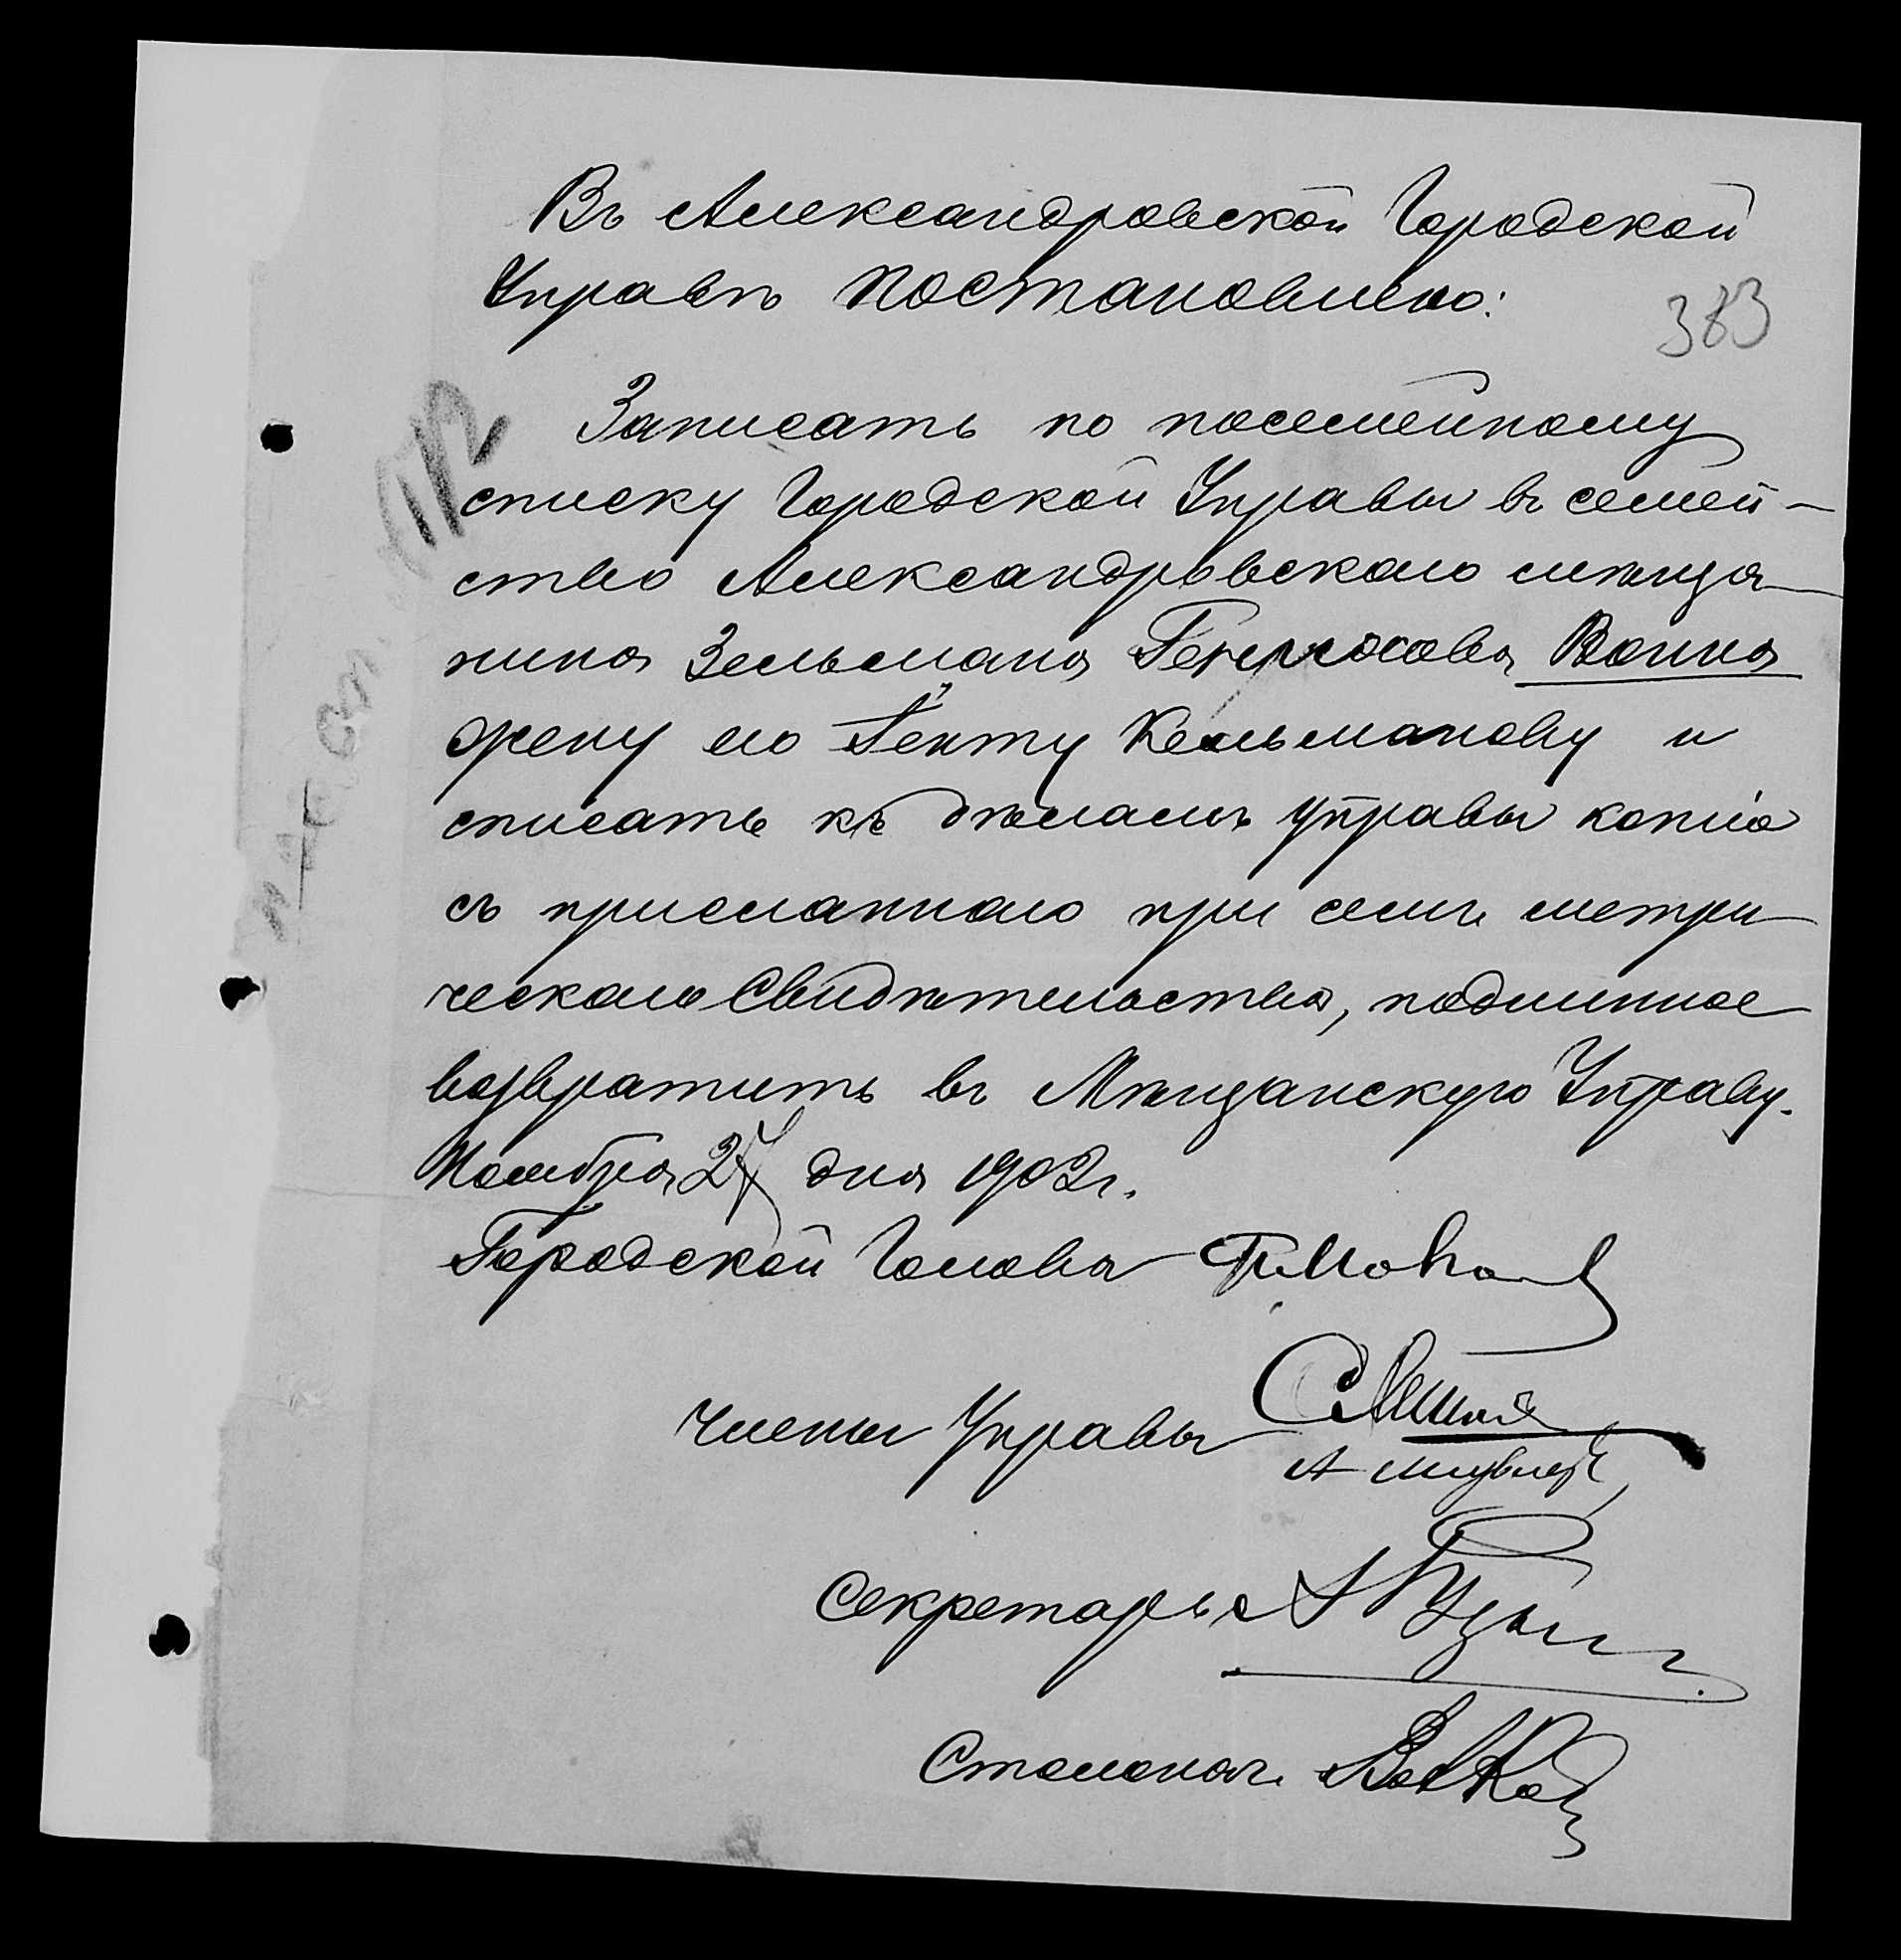 Въ Александровской Городской
Управѣ постановлено:
383
Записать по посемейному
списку Городской Управы въ семей-
ство Александровскаго мѣща-
нина Зельмана Воина
жену его Генту Кельманову и
списать къ дѣламъ Управы копію
съ присланнаго при семъ метри-
ческаго Свидѣтельства, подлинное
возвратить въ Мѣщанскую Управу.
Ноября 27 дня 1902 г.
Городской Голова
Члены Управы
Секретарь
Столонач.